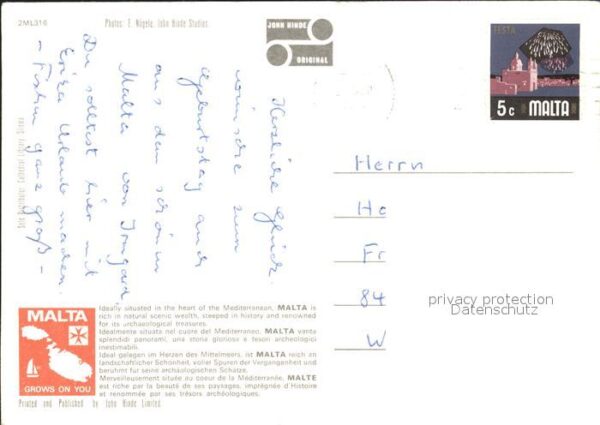 2ML316
Photos: E. Nägele, John Hinde Studios.
JOHN HINDE
ORIGINAL
FESTA
5c MALTA
Herzliche Glück-
wünsche zum
Geburtstag auch
aus dem schönen
Malta von Irmgard,
Du solltest hier mit
Erika Urlaub machen.
– Fische ganz groß –
Herrn
Ho
Fr
84
W
privacy protection
Datenschutz
Sole Distributor: Cathedral Library, Sliema
MALTA
GROWS ON YOU
Ideally situated in the heart of the Mediterranean, MALTA is
rich in natural scenic wealth, steeped in history and renowned
for its archaeological treasures.
Idealmente situata nel cuore del Mediterraneo, MALTA vanta
splendidi panorami, una storia gloriosa e tesori archeologici
inestimabili.
Ideal gelegen im Herzen des Mittelmeers, ist MALTA reich an
landschaftlicher Schönheit, voller Spuren der Vergangenheit und
berühmt für seine archäologischen Schätze.
Merveilleusement située au coeur de la Méditerranée, MALTE
est riche par la beauté de ses paysages, imprégnée d'Histoire
et renommée par ses trésors archéologiques.
Printed and Published by John Hinde Limited.